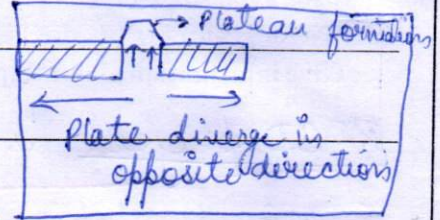 Plateau formations
Plate diverge in
opposite direction